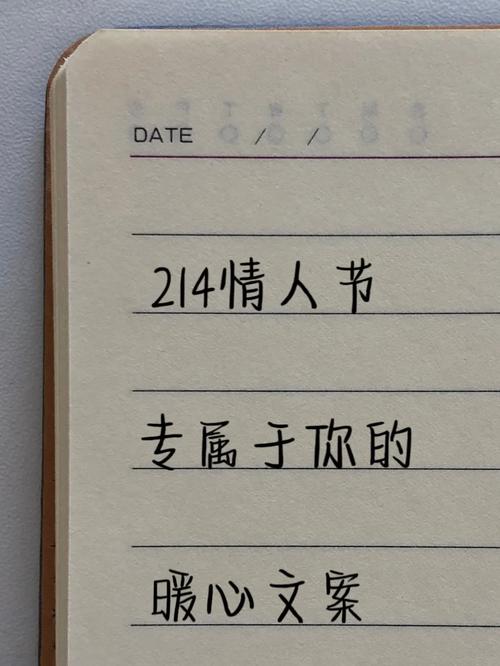 DATE / /
214情人节
专属于你的
暖心文案